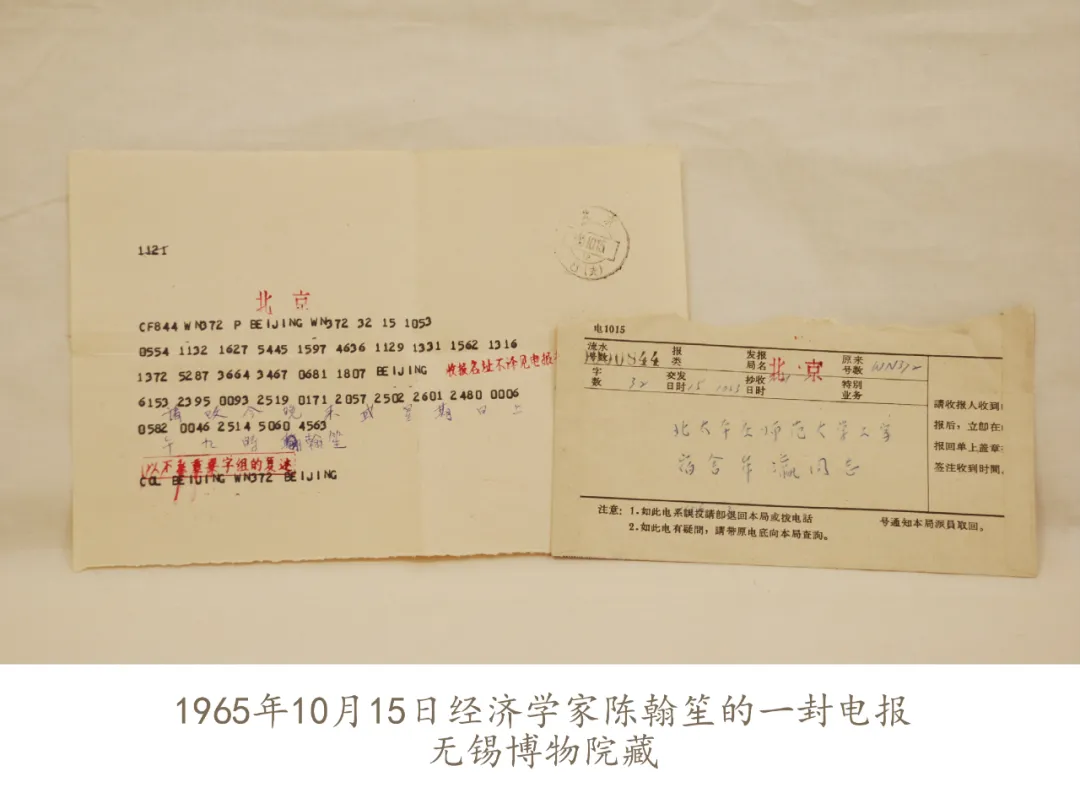 1121
北京
CF844 WN372 P BEIJING WN372 32 15 1053
0554 1132 1627 5445 1597 4636 1129 1331 1562 1316
1372 5287 3664 3467 0681 1807 BEIJING 收报名址不译见电报
6153 2395 0093 2519 0171 2057 2502 2601 2480 0006
請改今晚来或星期日上
0582 0046 2514 5060 4563
午九时翰笙
以下是重要字组的复述
COL BEIJING WN372 BEIJING
电1015
流水号数
报类
发报局名 北京
原来号数 WN372
字数 32
交发日时 15 1053
抄收日时
特别业务
北太平庄师范大学工字
宿舍牟瀛同志
請收报人收到
报后，立即在
报回单上盖章
签注收到时間
注意：1.如此电系誤投請即退回本局或拔电話 号通知本局派員取回。
2.如此电有疑問，請带原电底向本局查詢。
1965年10月15日经济学家陈翰笙的一封电报
无锡博物院藏